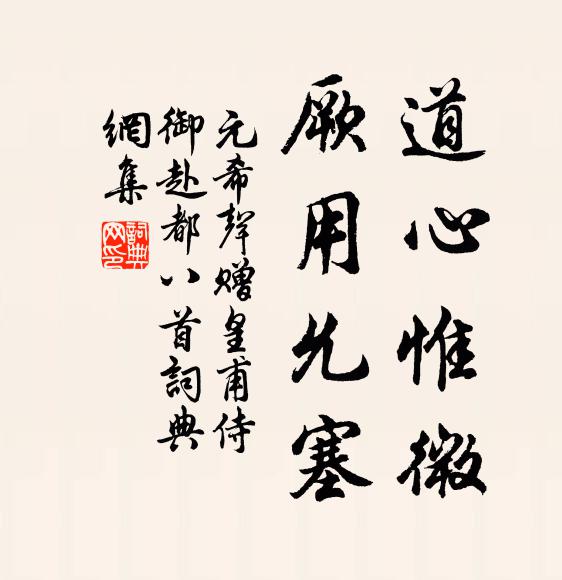 道心惟微
厥用允塞
元希聲贈皇甫侍
御赴都八首詞典
網集
詞典
网印